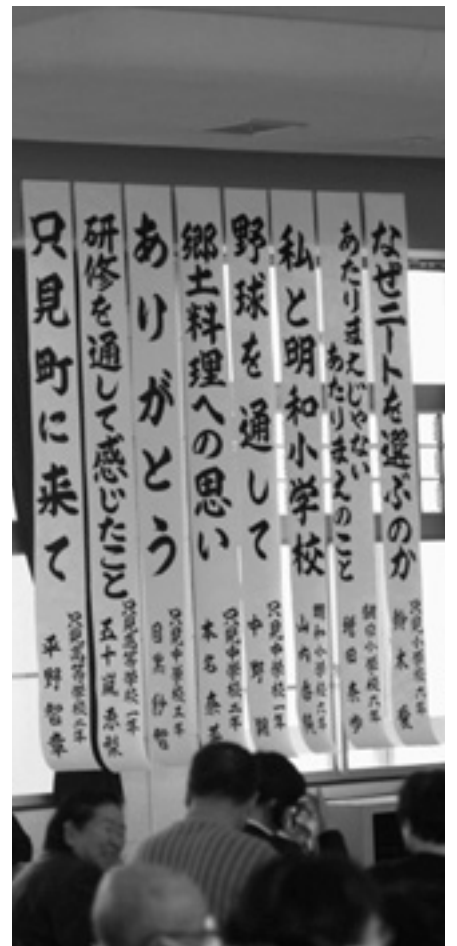 なぜニートを選ぶのか
只見小学校六年
鈴木
あたりまえじゃない
あたりまえのこと
朝日小学校六年
増田奈歩
私と明和小学校
明和小学校六年
山内
野球を通して
只見中学校一年
中野
郷土料理への思い
只見中学校二年
本名奈
ありがとう
只見中学校三年
目黒紗智
研修を通して感じたこと
只見高等学校一年
五十嵐恵梨
只見町に来て
只見高等学校二年
平野智章